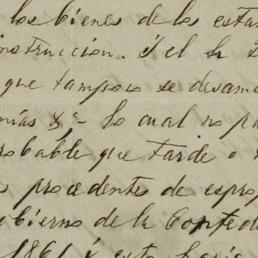 los bienes de los esta
nstruccion. I el h
que tampoco se desam
lo cual no pu
robable que tarde o
procedente de esprop
bierno de la Confede
1861 i esta